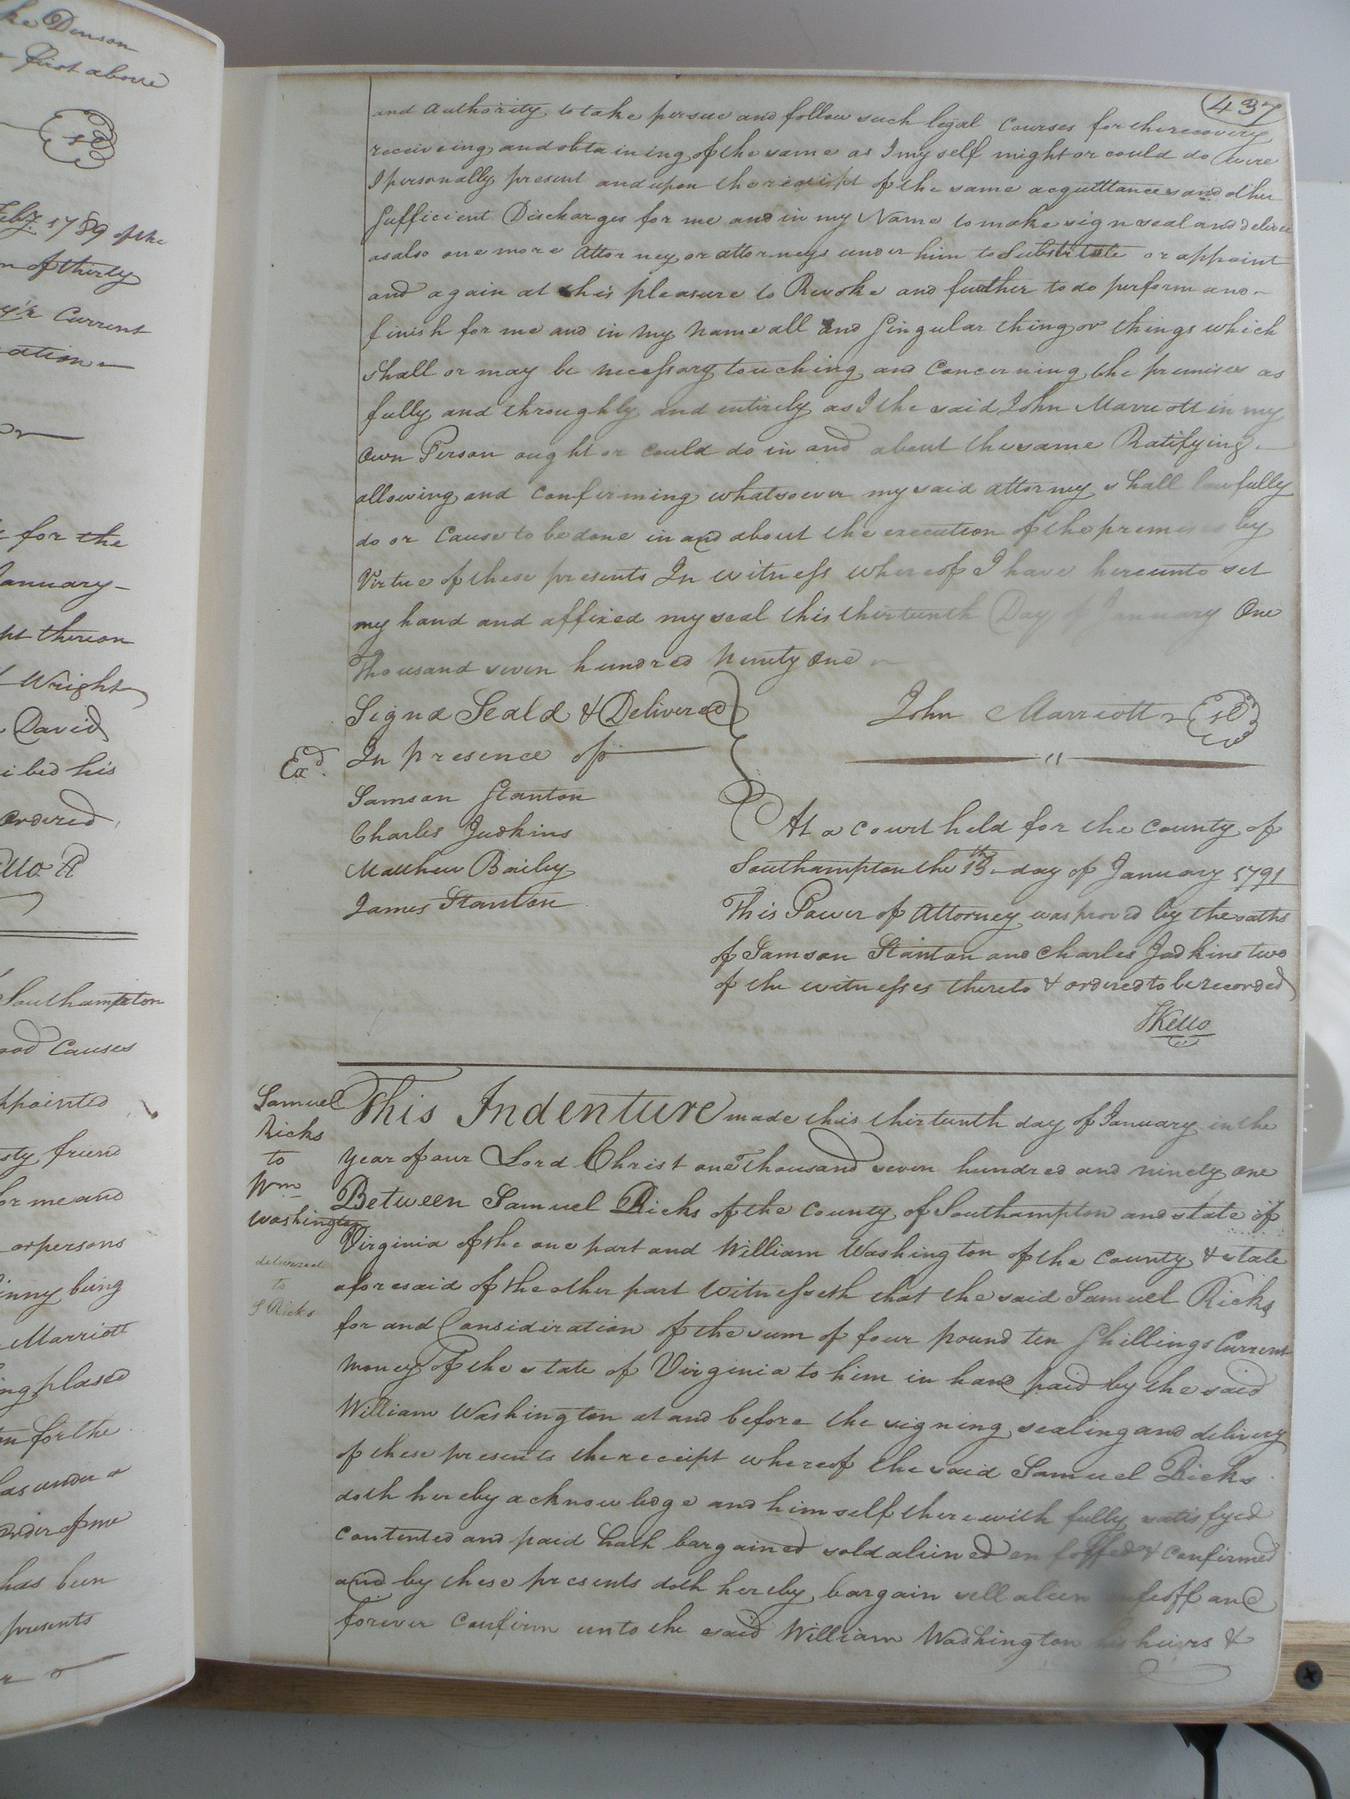 the Denson
first above
Feby. 1789 of the
of thirty
Current
for the
January
thereon
Wright
David
his
ordered
Southampton
Causes
appointed
friend
for me and
or persons
being
Marriott
placed
for the
under
order of me
has been
presents
437
and authority to take persue and follow such legal Courses for the recovery
receiveing and obtaining of the same as I my self might or could do were
I personally present and upon the receipt of the same acquttances and other
Sufficient Discharges for me and in my Name to make sign seal and deliver
as also one more Attorney or attorneys under him to Substitute or appoint
and again at his pleasure to Revoke and further to do perform and
finish for me and in my name all and Singular thing or things which
shall or may be necessary touching and Concerning the premises as
fully and throughly and entirely as I the said John Marriott in my
Own Person ought or could do in and about the same Ratifying
allowing and confirming whatsoever my said attorney shall lawfully
do or Cause to be done in and about the execution of the premises by
Virtue of these presents In witness whereof I have hereunto set
my hand and affixed my seal this thirteenth Day of January One
Thousand seven hundred Ninety One
Signd Seald & Delivered
In presence of
Exd.
Samson Stanton
Charles Judkins
Matthew Bailey
James Stanton
John Marriott
At a court held for the County of
Southampton the 13th day of January 1791
This Power of Attorney was proved by the oaths
of Samson Stanton and Charles Judkins two
of the witnesses thereto & ordered to be recorded
Kello
Samuel
Ricks
to
Wm
Washington
delivered
to
S Ricks
This Indenture made this thirteenth day of January in the
year of our Lord Christ one Thousand seven hundred and ninety one
Between Samuel Ricks of the County of Southampton and state of
Virginia of the one part and William Washington of the County & state
aforesaid of the other part Witnesseth that the said Samuel Ricks
for and Consideration of the sum of four pound ten Shillings Current
Money of the state of Virginia to him in hand paid by the said
William Washington at and before the signing sealing and delivery
of these presents the receipt whereof the said Samuel Ricks
doth hereby acknowledge and himself therewith fully satisfyed
Contented and paid hath bargained sold aliened enfoffed & confirmed
and by these presents doth hereby bargain sell alien enfeoff and
forever Confirm unto the said William Washington his heirs &